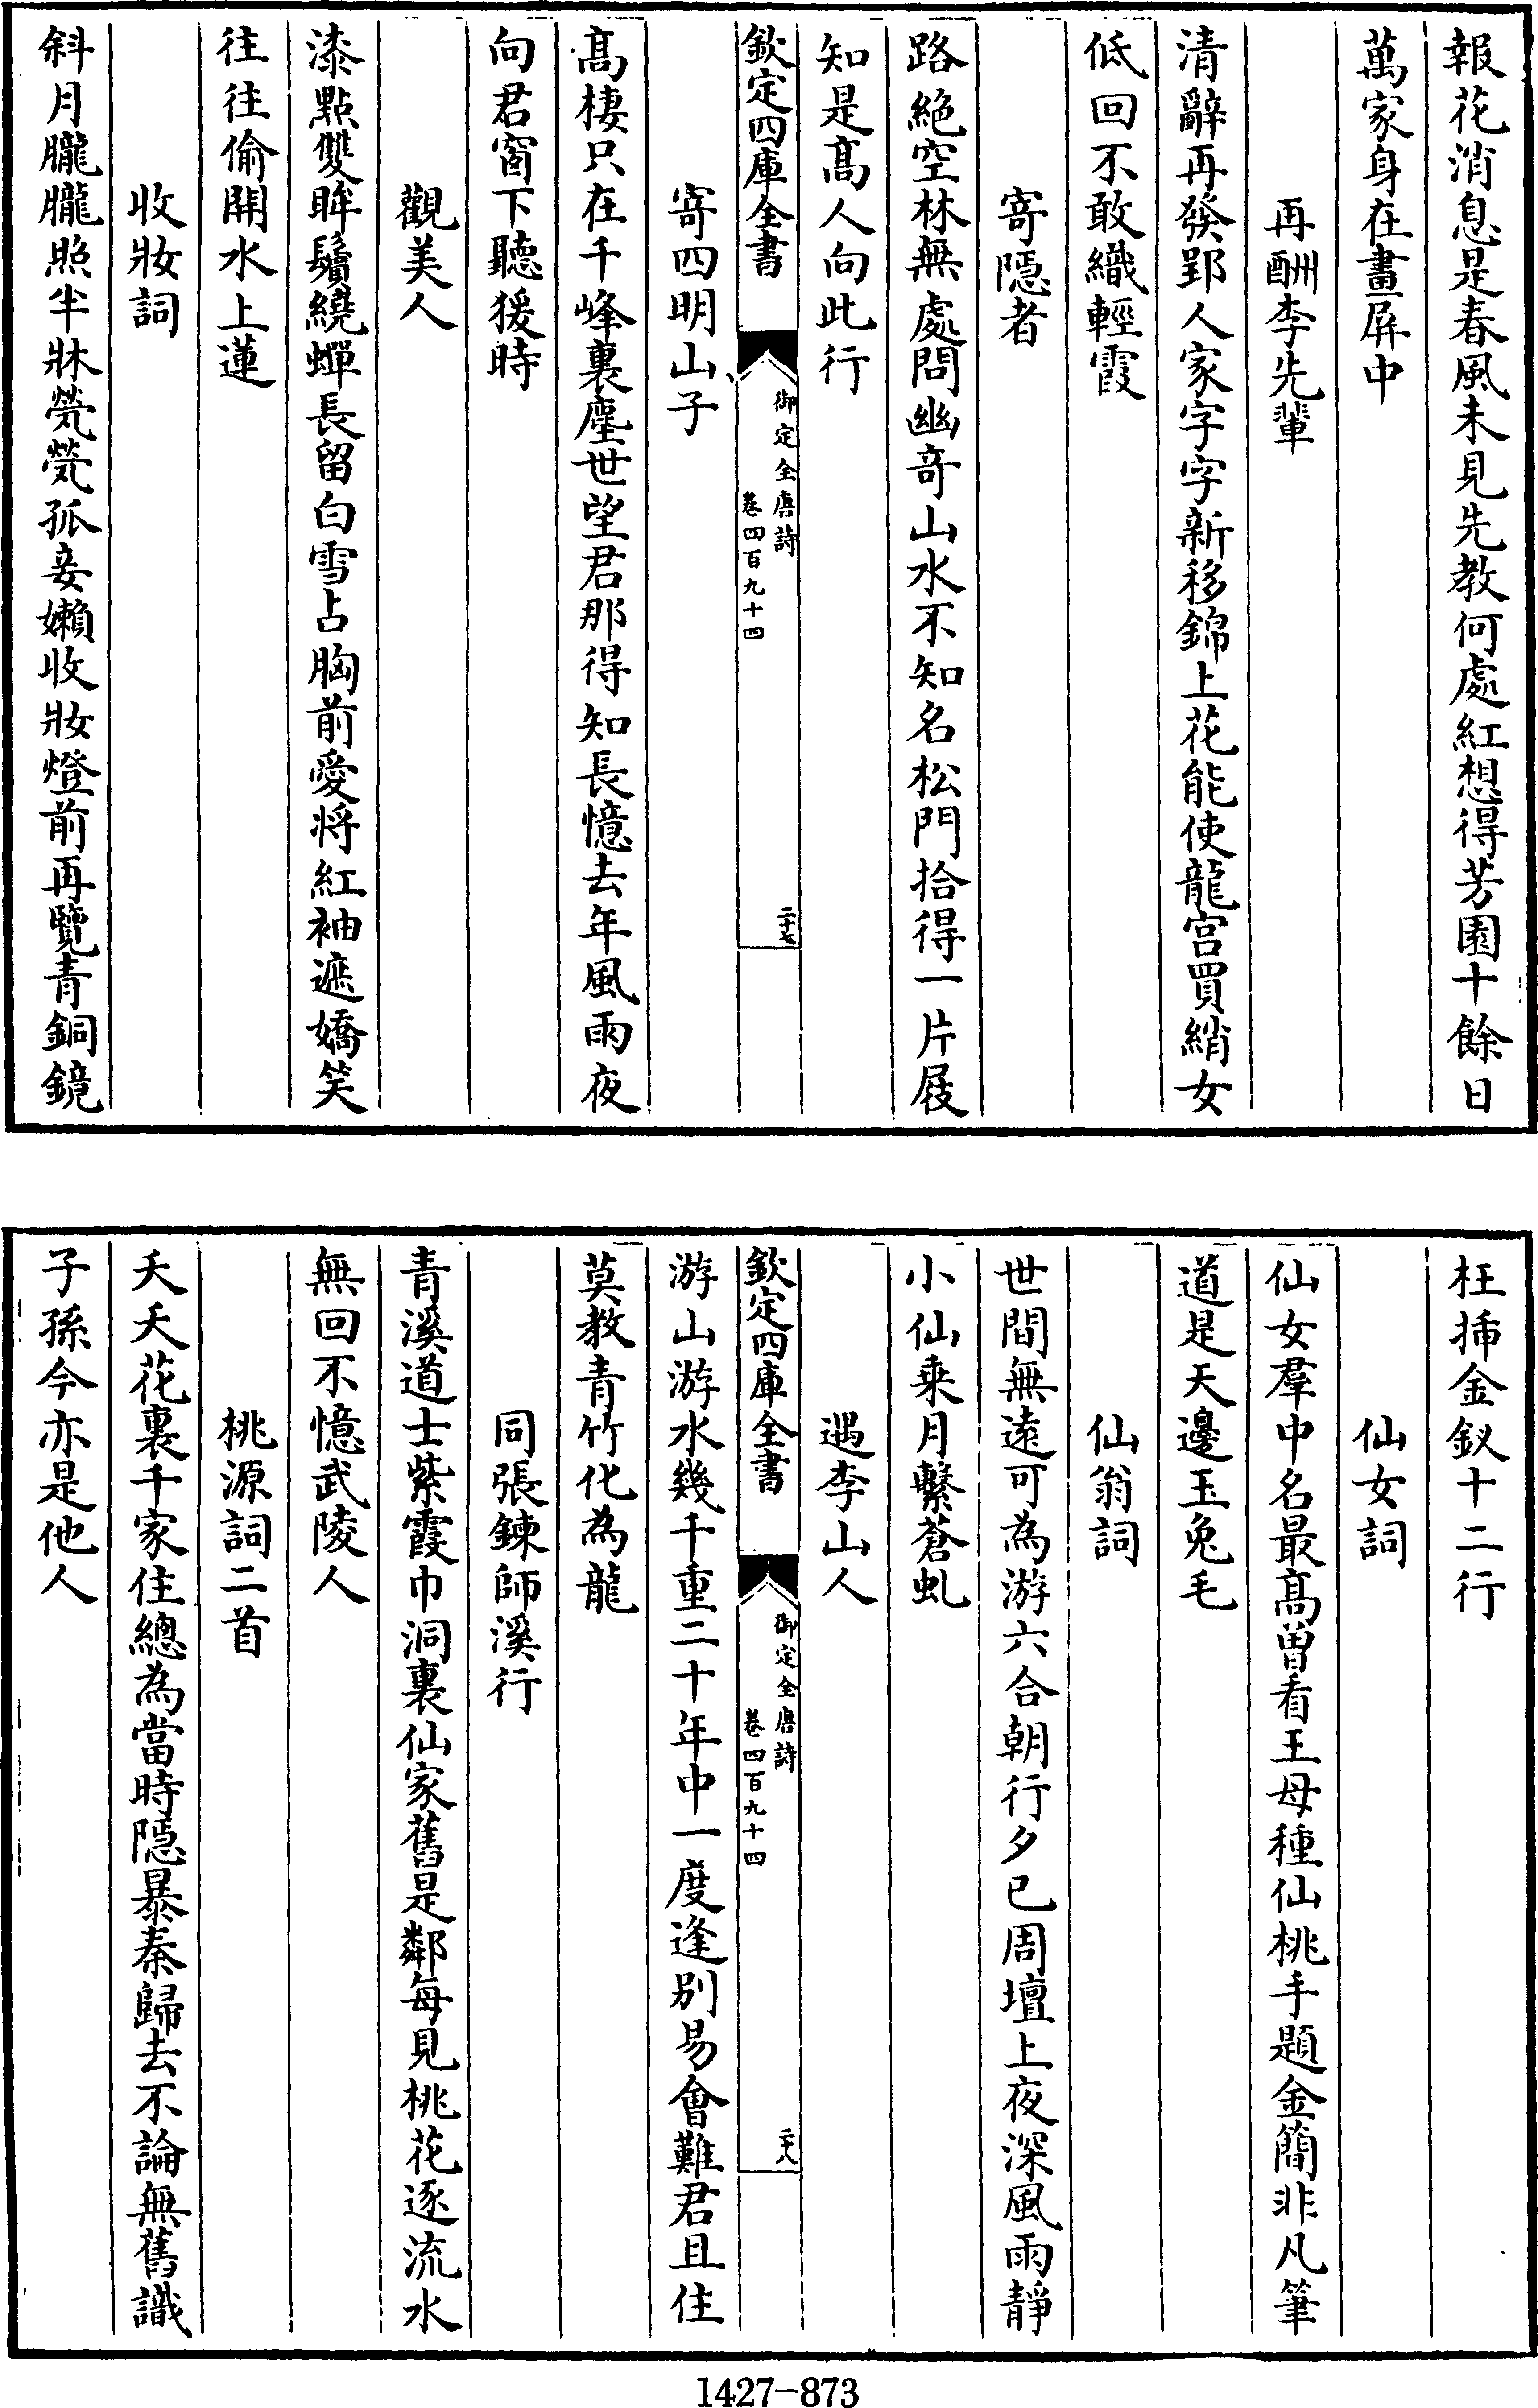 報花消息是春風未見先教何處紅想得芳園十餘日
萬家身在畫屏中
再酬李先輩
清辭再發郢人家字字新移錦上花能使龍宮買綃女
低回不敢織輕霞
寄隱者
路絶空林無處問幽奇山水不知名松門拾得一片屐
知是髙人向此行
欽定四庫全書
御定全唐詩
卷四百九十四
二十七
寄四明山子
髙棲只在千峰裏塵世望君那得知長憶去年風雨夜
向君窗下聽猨時
觀美人
漆點雙眸鬢繞蟬長留白雪占胸前愛将紅袖遮嬌笑
往往偷開水上蓮
收妝詞
斜月朧朧照半牀煢煢孤妾嬾收妝燈前再覽青銅鏡
枉插金釵十二行
仙女詞
仙女羣中名最髙曽看王母種仙桃手題金簡非凡筆
道是天邊玉兔毛
仙翁詞
世間無逺可為游六合朝行夕已周壇上夜深風雨靜
小仙乗月繫蒼虬
遇李山人
欽定四庫全書
御定全唐詩
卷四百九十四
二十八
游山游水幾千重二十年中一度逢别易會難君且住
莫教青竹化為龍
同張鍊師溪行
青溪道士紫霞巾洞裏仙家舊是鄰每見桃花逐流水
無回不憶武陵人
桃源詞二首
夭夭花裏千家住總為當時隱暴秦歸去不論無舊識
子孫今亦是他人
1427-873